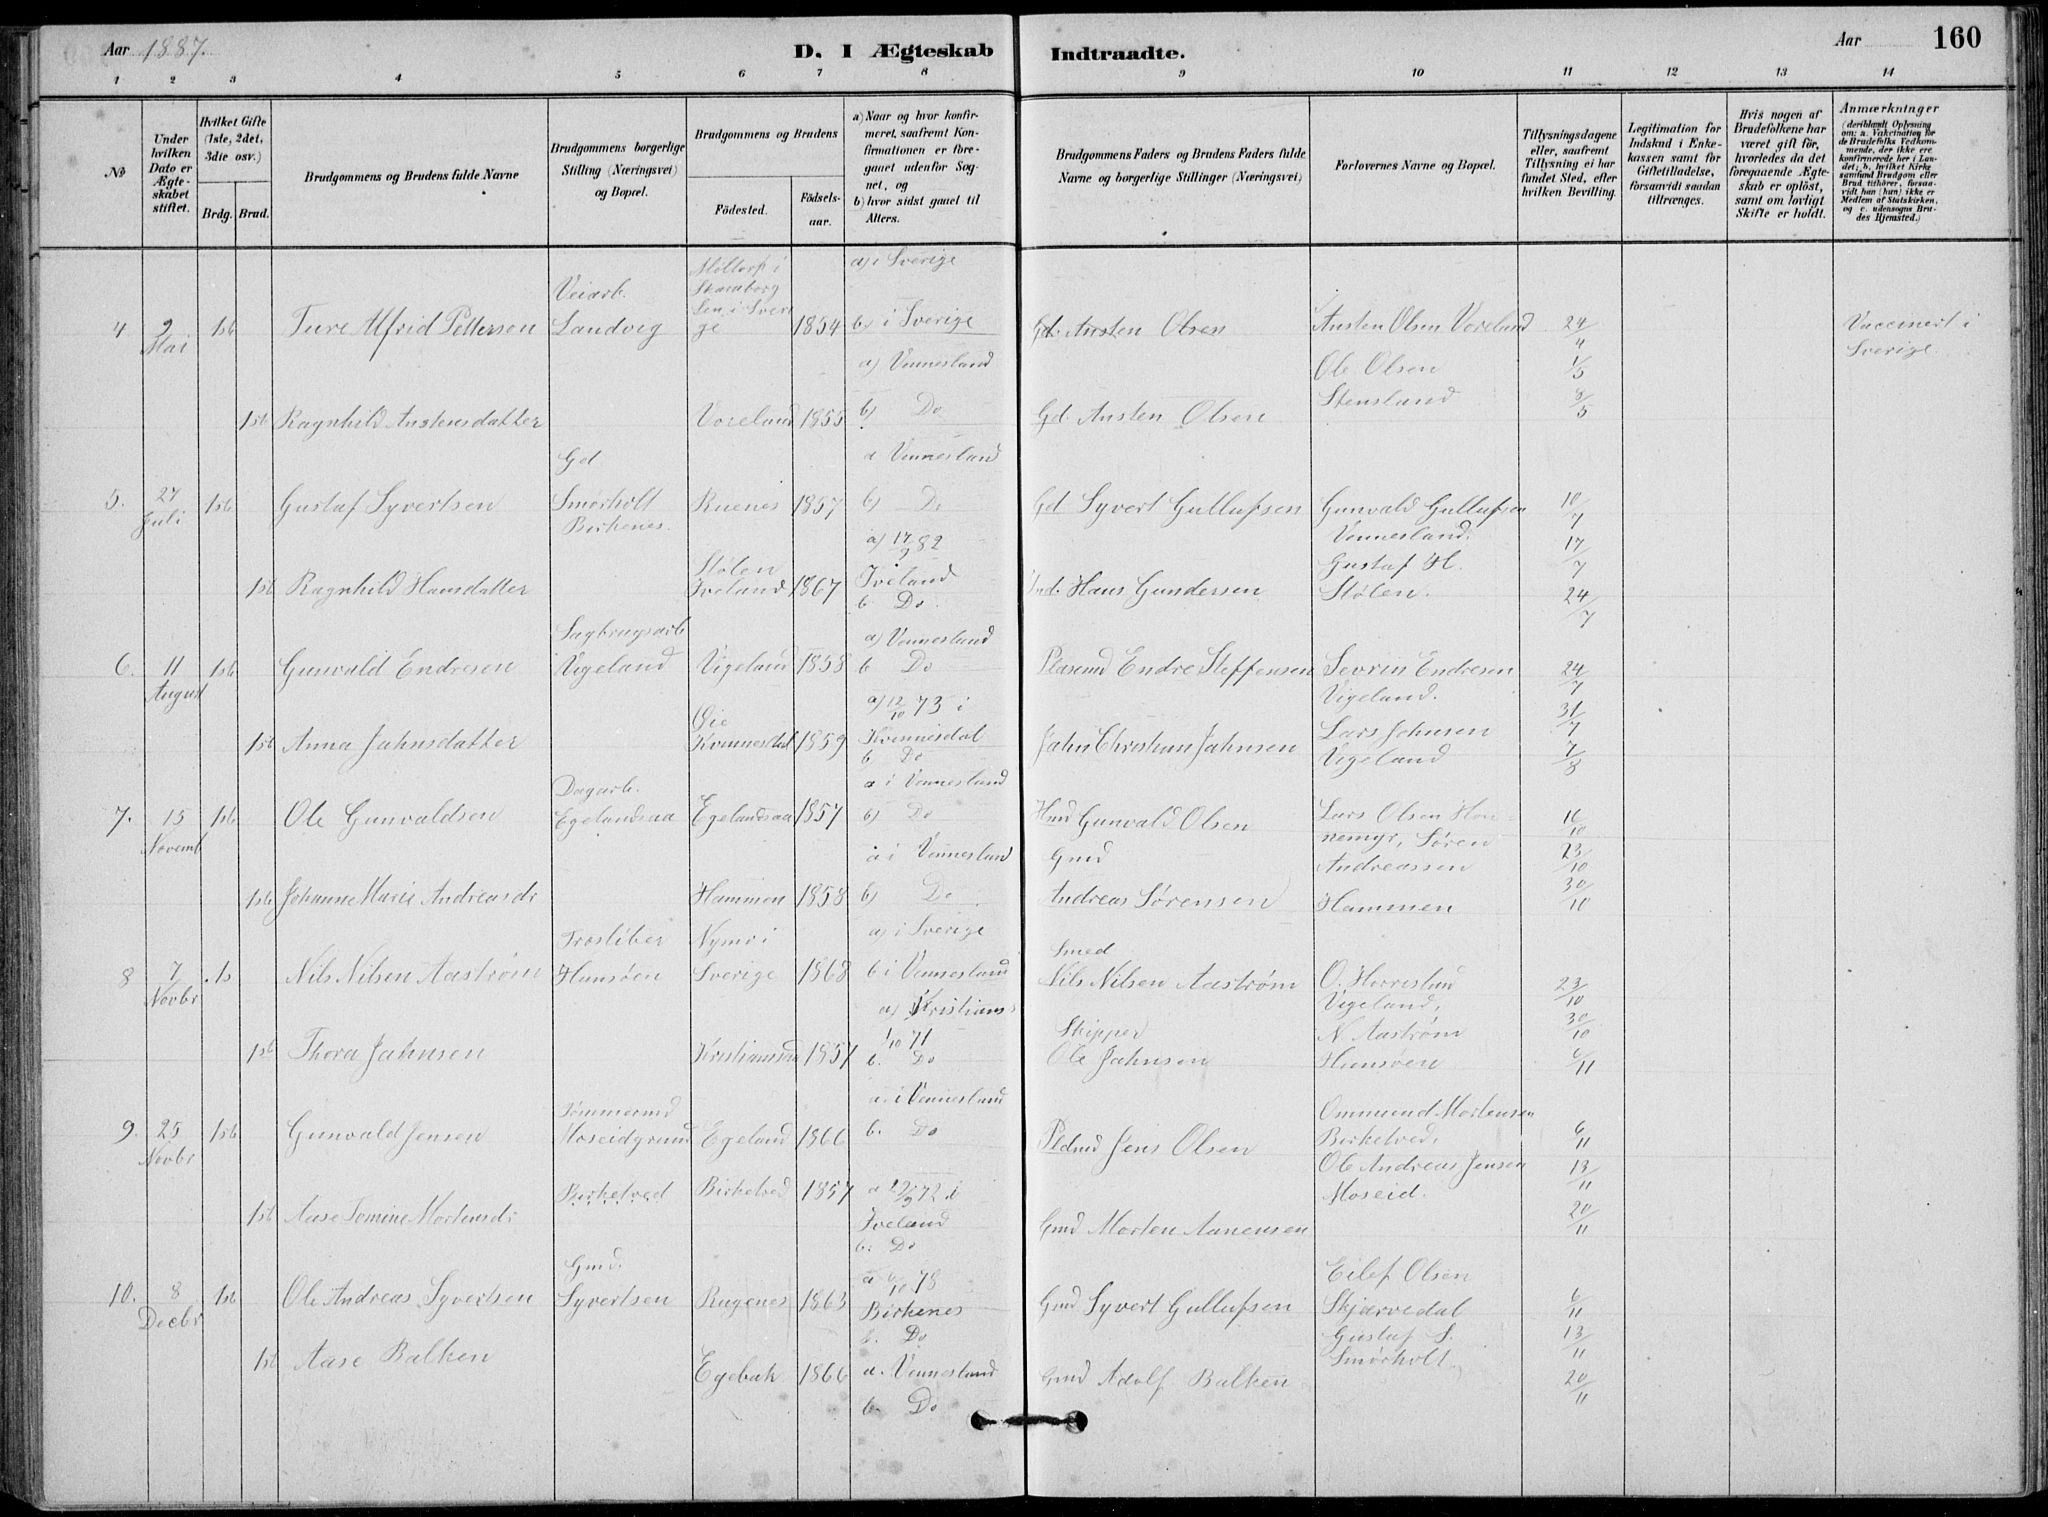 Aar 1887.
D. I Ægteskab Indtraadte.
Aar
160
1 2 3 4 5 6 7 8 9 10 11 12 13 14
№
Under hvilken Dato er Ægteskabet stiftet.
Hvilket Gifte (1ste, 2det, 3die osv.)
Brdg. Brud.
Brudgommens og Brudens fulde Navne
Brudgommens borgerlige Stilling (Næringsvei) og Bopæl.
Brudgommens og Brudens
Fødested.
Fødselsaar.
a) Naar og hvor konfirmeret, saafremt Konfirmationen er foregaaet udenfor Sognet, og
b) hvor sidst gaaet til Alters.
Brudgommens Faders og Brudens Faders fulde Navne og borgerlige Stillinger (Næringsvei)
Forlovernes Navne og Bopæl.
Tillysningsdagene eller, saafremt Tillysning ei har fundet Sted, efter hvilken Bevilling.
Legitimation for Indskud i Enkekassen samt for Giftetilladelse, forsaavidt saadan tiltrænges.
Hvis nogen af Brudefolkene har været gift før, hvorledes da det foregaaende Ægteskab er opløst, samt om lovligt Skifte er holdt.
Anmærkninger
(deriblandt Oplysning om: a. Vakcination for de Brudefolks Vedkommende, der ikke ere konfirmerede her i Landet; b. hvilket Kirkesamfund Brudgom eller Brud tilhører, forsaavidt han (hun) ikke er Medlem af Statskirken, og c. udensogns Brudes Hjemsted.)
4 9 Mai 1ste Ture Alfrid Pettersen
Veiarb. Landvig
i Skaraborg Len, i Sverige 1854
a) i Sverige
b) i Sverige
Gd. Austen Olsen
Austen Olsen Voreland
Ole Olsen Stensland
24/4
1/5
8/5
Vaccinert i Sverige.
1ste Ragnhild Austensdatter
Voreland 1855
a) Vennesland
b) Do
Gd. Austen Olsen
5. 27 Juli 1ste Gustaf Syvertsen
Gd Smørholt Birkenes.
Ruenes 1857
a Vennesland
b) Do
Gd Syvert Gullufsen
Gunvald Gullufsen Vennesland.
Gustaf H. Stølen.
10/7
17/7
24/7
1ste Ragnhild Hansdatter
Stølen Iveland 1867
a) 17/9 82 Iveland
b Do.
Hans Gundersen
6. 11 August 1ste Gunvald Endresen
Sagbrugsarb Vigeland
Vigeland 1858
a) Vennesland
b Do
Pladsmd Endre Steffensen
Sevrin Endresen Vigeland.
Lars Johnsen Vigeland
24/7
31/7
7/8
1ste Anna Jahnsdatter
Øie Kvinnesdal 1859
a) 12/10 73 i Kvinnesdal
b Do
Jahn Christian Jahnsen
7. 15 Novemb 1ste Ole Gunvaldsen
Dagarb. Egelandsaa
Egelandsaa 1857
a i Vennesland
b) Do
Hmd Gunvald Olsen
Lars Olsen Honnemyr, Søren Andreassen Hammen
16/10
23/10
30/10
1ste Johanne Marie Andreasdr
Hammen 1858
a i Vennesland
b) Do
Gmd Andreas Sørensen
8 7 Novbr 1s Nils Nilsen Aastrøm
Træsliber Hunsøen
Nymo i Sverige 1868
a) i Sverige
b i Vennesland
Smed Nils Nilsen Aastrøm
O. Vigeland,
N Aastrøm Hunsøen
23/10
30/10
6/11
1ste Thora Jahnsen
Kristianssa 1857
a) Kristianss 1/10 71
b. Do
Skipper Ole Jahnsen
9. 25 Novbr 1ste Gunvald Jensen
Tømmermd Moseidgrund
Egeland 1866
a. i Vennesland
b. Do
Pladsmd Jens Olsen
Ommund Mortensen Birketved,
Ole Andreas Jensen Moseid.
6/11
13/11
20/11
1ste Aase Tomine Mortensdr
Birketved
Birketved 1857
a 29/9 72 i Iveland
b. Do
Gmd Morten Aanensen
10. 8 Decbr 1ste Ole Andreas Syvertsen
Gmd. Syvertsen
Rugenes 1863
a 6/10 78 Birkenes
b. Do
Gmd Syvert Gullufsen
Eilef Olsen Skjærvedal
Gustaf S. Smørholt.
6/11
13/11
20/11
1st Aase Balken
Egebak 1866
a. Vennesland
b. Do
Gmd Adolf Balken